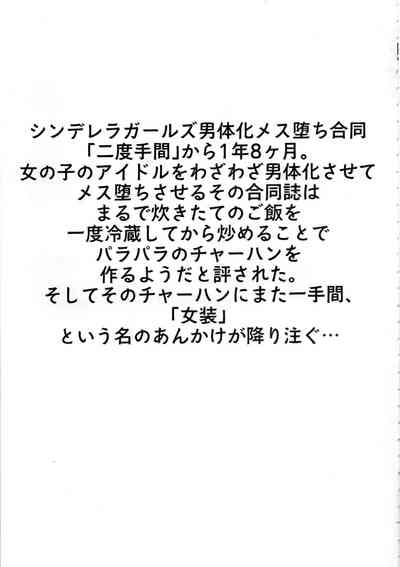 シンデレラガールズ男体化メス堕ち合同
「二度手間」から1年8ヶ月。
女の子のアイドルをわざわざ男体化させて
メス堕ちさせるその合同誌は
まるで炊きたてのご飯を
一度冷蔵してから炒めることで
パラパラのチャーハンを
作るようだと評された。
そしてそのチャーハンにまた一手間、
「女装」
という名のあんかけが降り注ぐ…